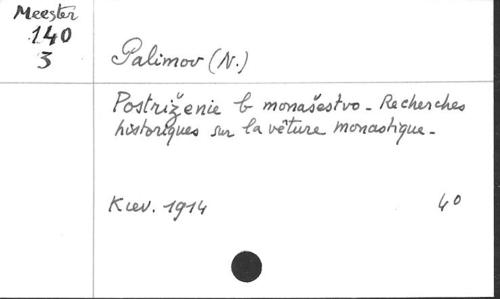 Meester
140
3
Palimov (N.)
Postriženie b monašestvo - Recherches
historiques sur la vêture monastique -
Kiev. 1914
40